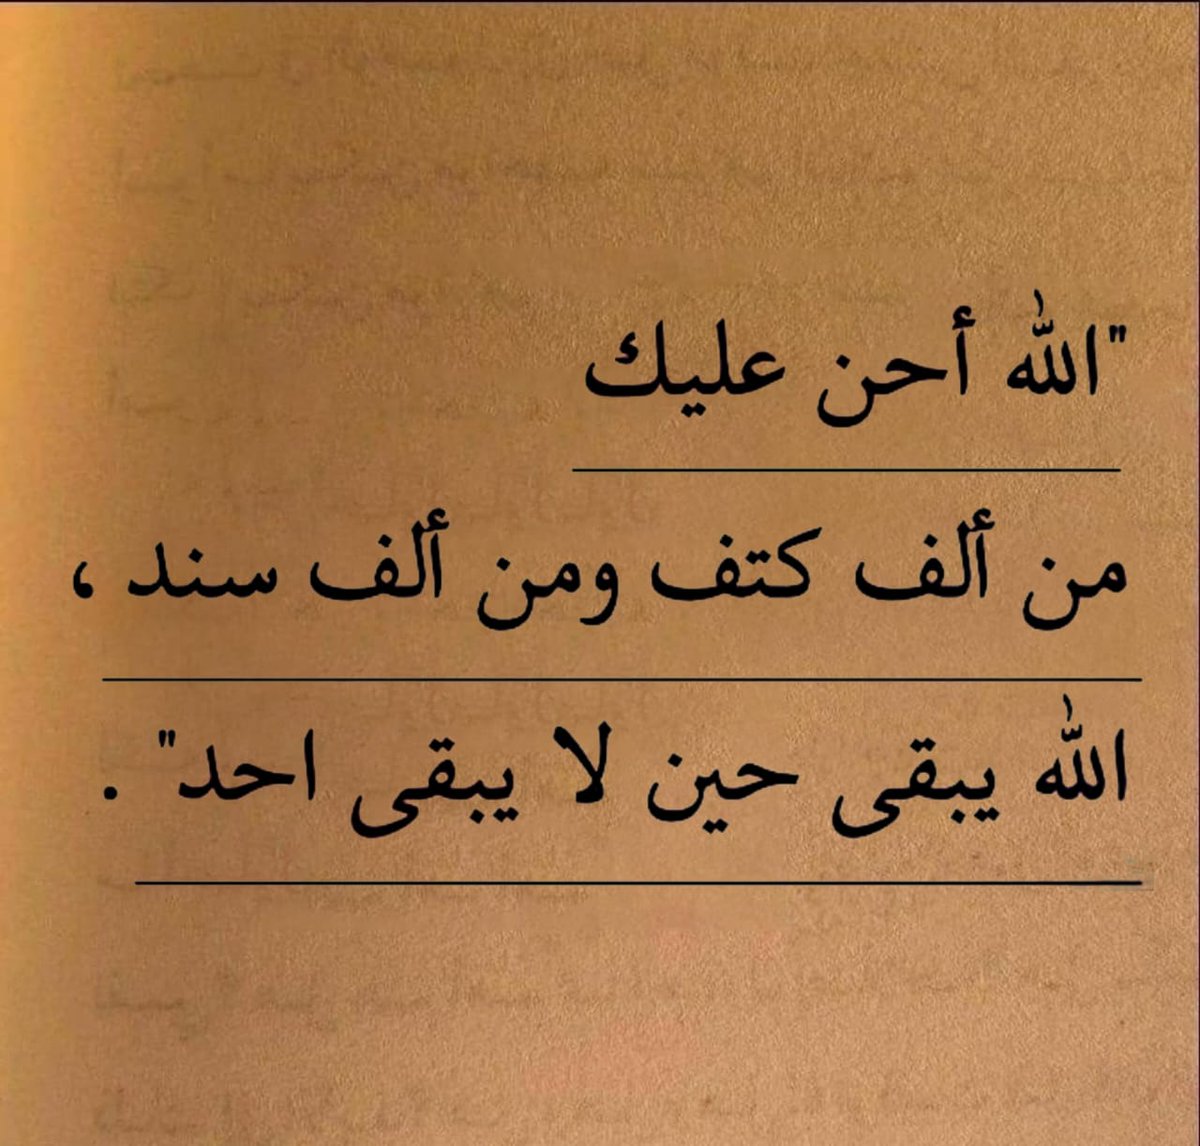 "الله أحن عليك
من ألف كتف ومن ألف سند ،
الله يبقى حين لا يبقى احد" .